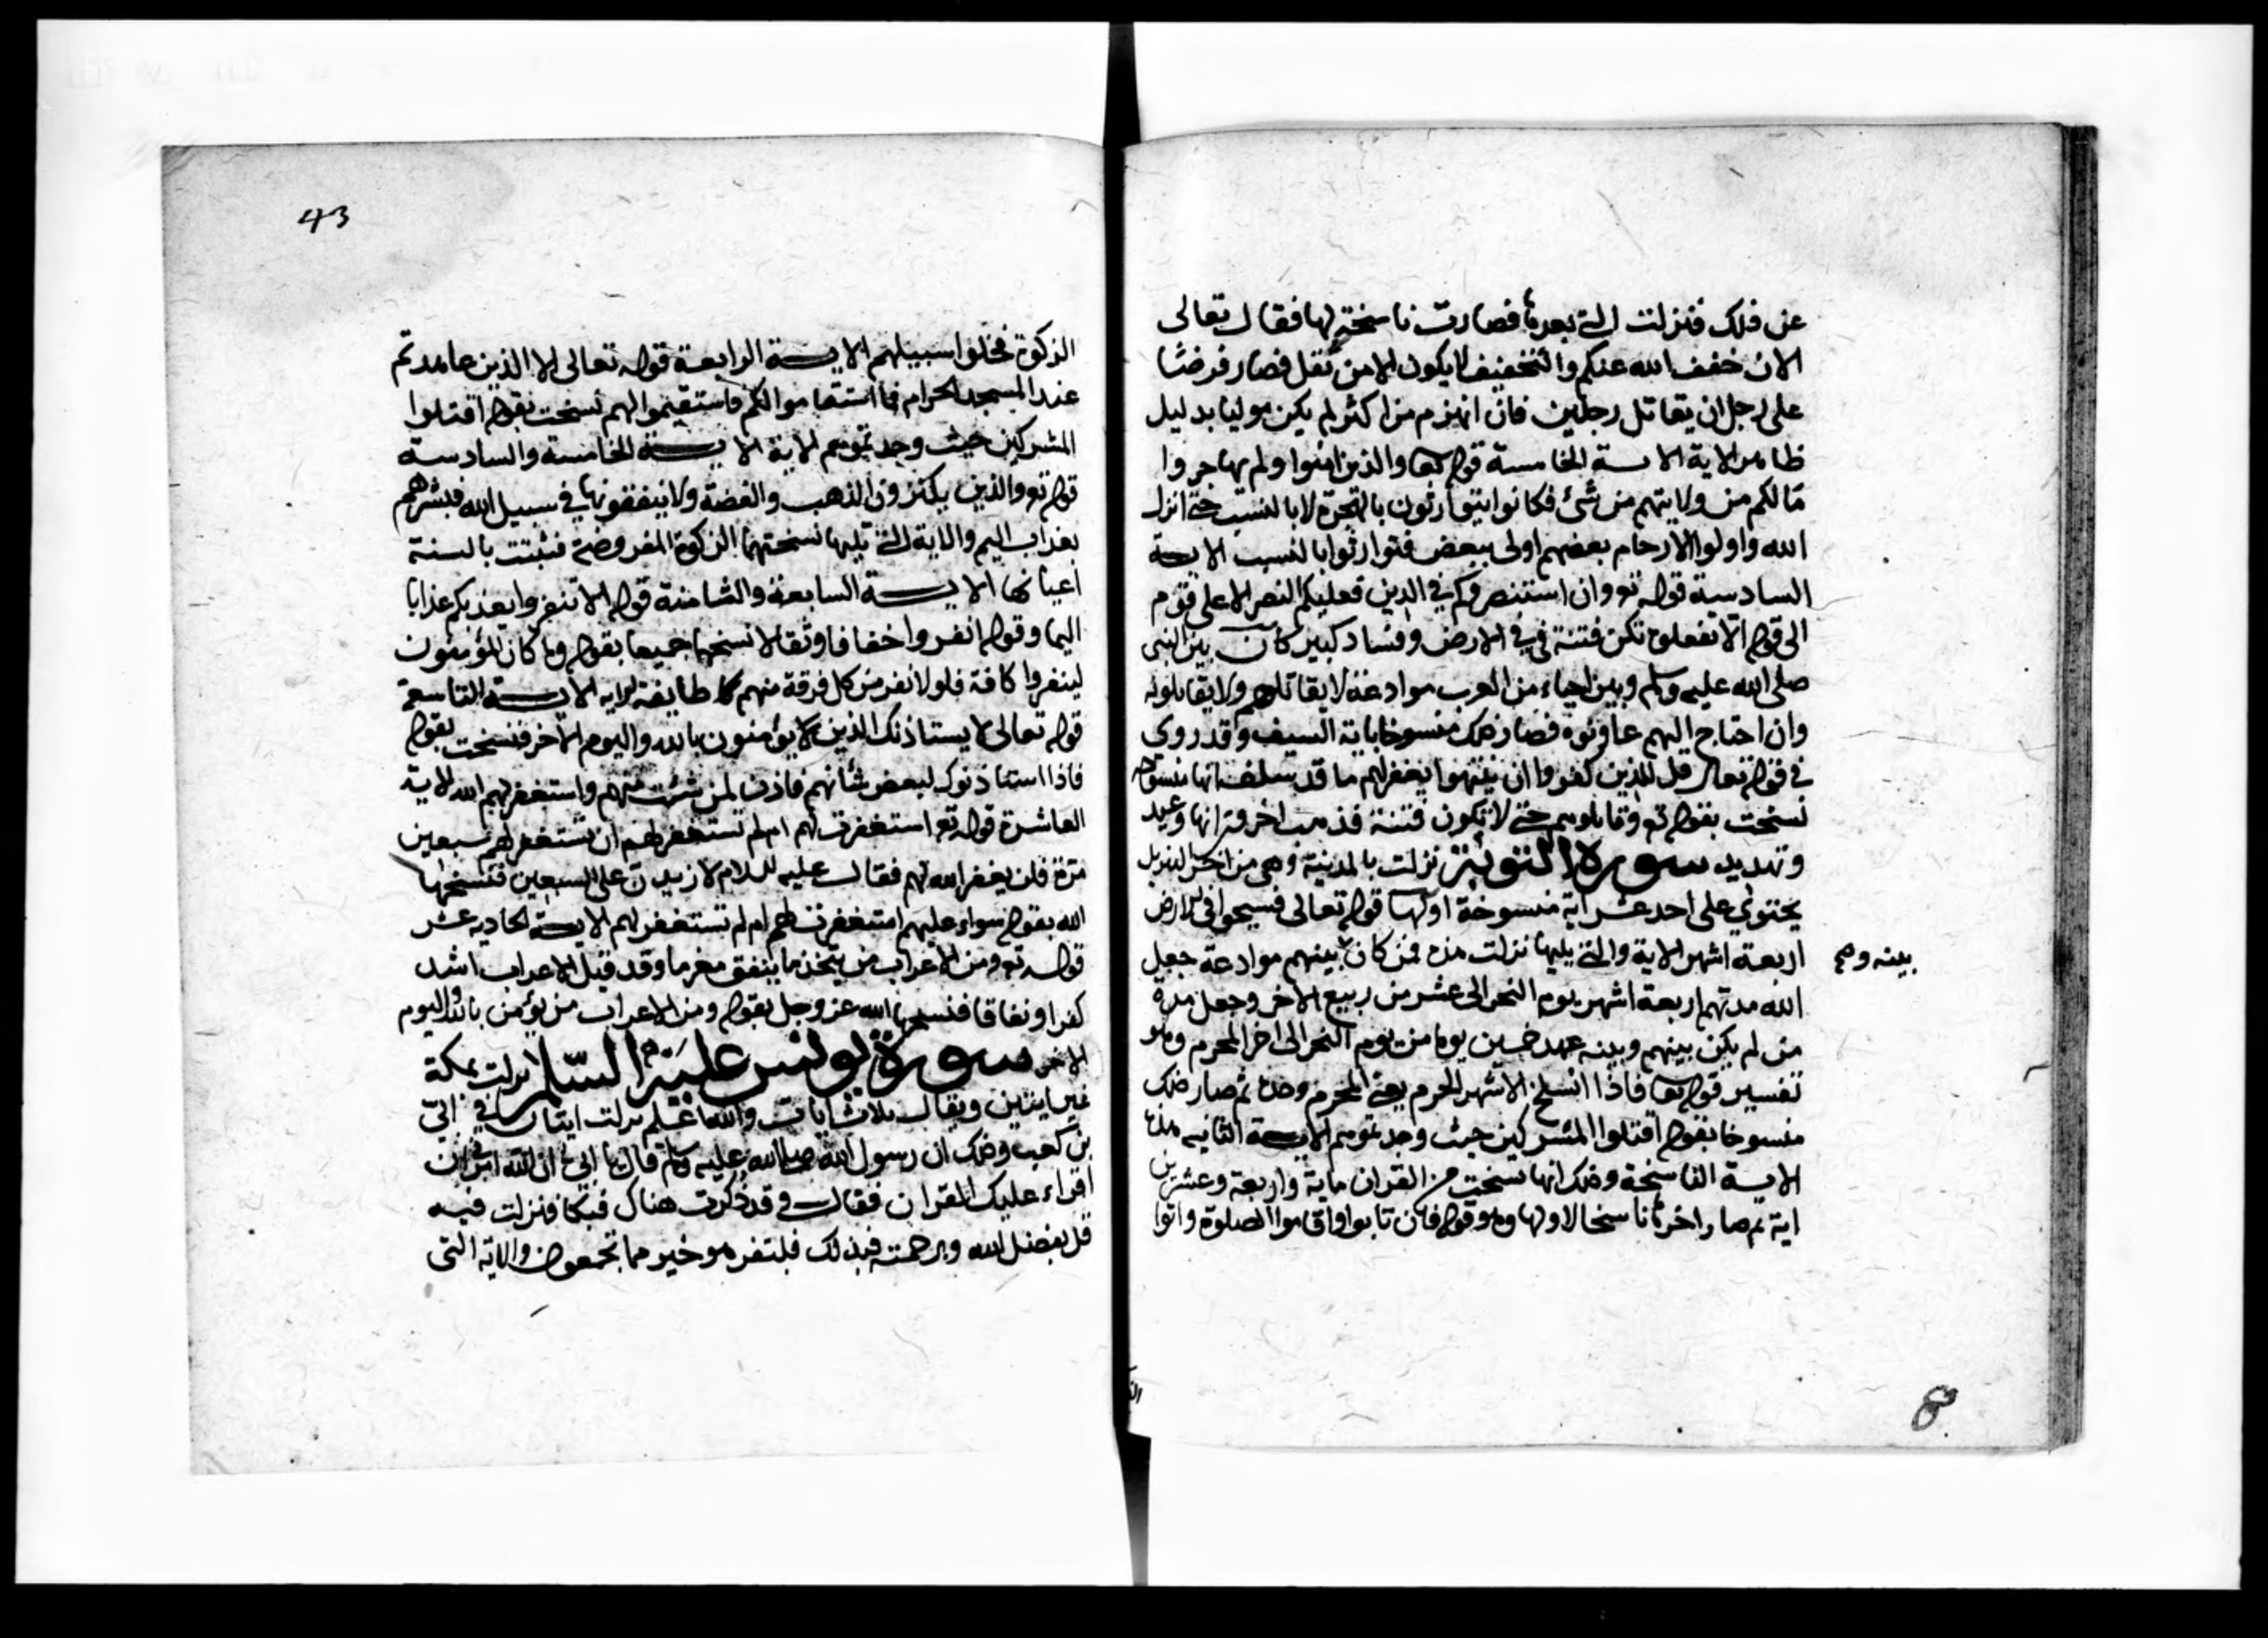 عن ذلك فنزلت التي بعدها فصارت ناسخة لها فقال تعالى
الان خفف الله عنكم والتخفيف لا يكون الا من ثقل فصار فرضا
على رجل ان يقاتل رجلين فان انهزم من اكثر لم يكن موليا بدليل
ظاهر الاية الاية الخامسة قوله تعا والذين امنوا ولم يهاجروا
مالكم من ولايتهم من شئ فكانوا يتوارثون بالهجرة لا بالنسب حتى انزل
الله واولوا الارحام بعضهم اولى ببعض فتوارثوا بالنسب الاية
السادسة قوله تع وان استنصروكم في الدين فعليكم النصر الا على قوم
الى قوله الا تفعلوه تكن فتنة في الارض وفساد كبير كان بين النبي
صلى الله عليه وسلم وبين احياء من العرب موادعة لا يقاتلهم ولا يقاتلونه
وان احتاج اليهم عاونوه فصار ذلك منسوخا باية السيف وقد روي
في قوله تعالى قل للذين كفروا ان ينتهوا يغفر لهم ما قد سلف انها منسوخة
نسخت بقوله تع وقاتلوهم حتى لا تكون فتنة فذهب اخرون انها وعيد
وتهديد سورة التوبة نزلت بالمدينة وهي من اخر التنزيل
يحتوي على احد عشر اية منسوخة اولها قوله تعالى فسيحوا في الارض
اربعة اشهر الاية والتي يليها نزلت هذه فمن كان بينهم موادعة جعل
بينه وهم
الله مدتهم اربعة اشهر يوم النحر الى عشر من ربيع الاخر وجعل مدة
من لم يكن بينهم وبينه عهد خمسين يوما من يوم النحر الى اخر المحرم وهو
تفسير قوله تعا فاذا انسلخ الاشهر الحرم يعني المحرم وحده ثم صار ذلك
منسوخا بقوله اقتلوا المشركين حيث وجدتموهم الاية الثانيه هذه
الاية الناسخة وذلك انها نسخت من القران ماية واربعة وعشرين
اية ثم صار اخرها ناسخا لاولها وهو قوله فان تابوا واقاموا الصلوة واتوا
8
43
الزكوة فخلوا سبيلهم الاية الرابعة قوله تعالى الا الذين عاهدتم
عند المسجد الحرام فما استقاموا لكم فاستقيموا لهم نسخت بقوله اقتلوا
المشركين حيث وجدتموهم الاية الاية الخامسة والسادسة
قوله تع والذين يكنزون الذهب والفضة ولا ينفقونها في سبيل الله فبشرهم
بعذاب اليم والاية التي تليها نسختهما الزكوة المفروضة فثبتت بالسنة
اعيانها الاية السابعة والثامنة قوله الا تنفروا يعذبكم عذابا
اليما وقوله انفروا خفافا وثقالا نسخها جميعا بقوله وما كان المؤمنون
لينفروا كافة فلولا نفر من كل فرقة منهم طايفة الاية الاية التاسعة
قوله تعالى لا يستاذنك الذين لا يؤمنون بالله واليوم الاخر فنسخت بقوله
فاذا استاذنوك لبعض شانهم فاذن لمن شئت منهم واستغفر لهم الله الاية
العاشرة قوله تع استغفرت لهم ام لم تستغفر لهم ان تستغفر لهم سبعين
مرة فلن يغفر الله لهم فقال عليه السلام لازيدن على السبعين فنسخها
الله بقوله سواء عليهم استغفرت لهم ام لم تستغفر لهم الاية الحاديه عشر
قوله تع ومن الاعراب من يتخذ ما ينفق مغرما وقد قيل الاعراب اشد
كفرا ونفاقا فنسخها الله عز وجل بقوله ومن الاعراب من يؤمن بالله واليوم
الاخر سورة يونس عليه السلام نزلت بمكة
غير ايتين ويقال ثلاث ايات والله اعلم نزلت ايتان في ابي
بن كعب وذلك ان رسول الله صلى الله عليه وسلم قال يا ابي ان الله امرني ان
اقراء عليك القران فقال وقد ذكرت هناك فبكا فنزلت فيه
قل بفضل الله وبرحمته فبذلك فليفرحوا هو خير مما تجمعون والاية التي